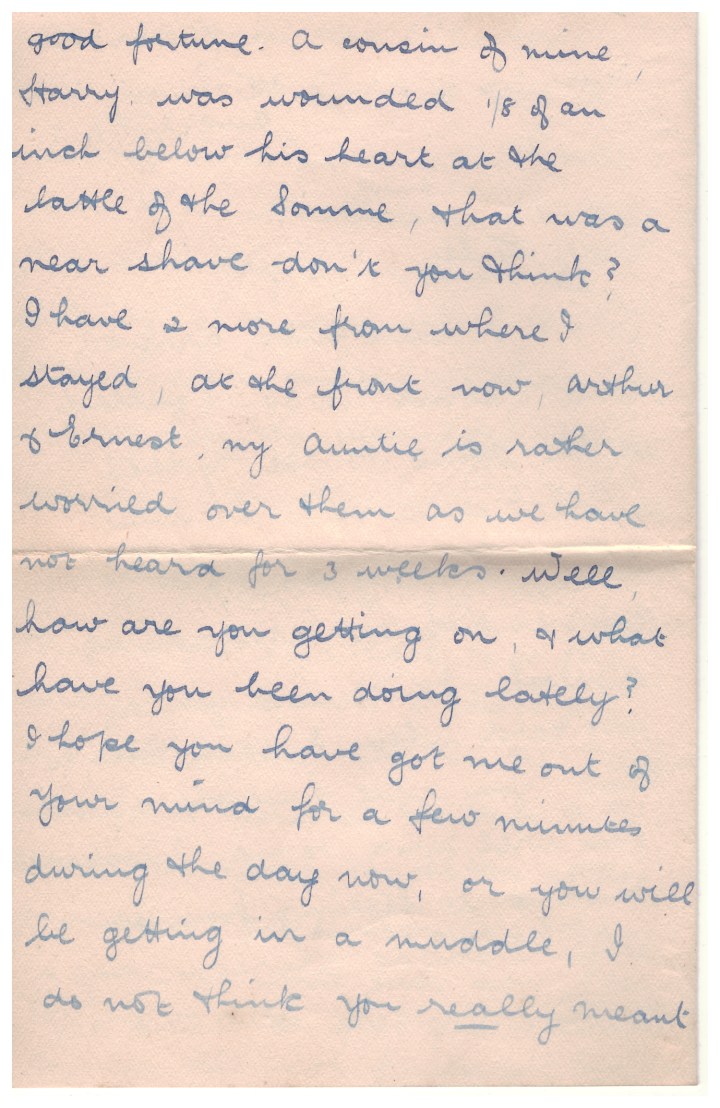 good fortune. A cousin of mine,
Harry. was wounded 1/8 of an
inch below his heart at the
battle of the Somme, that was a
near shave don't you think?
I have 2 more from where I
stayed, at the front now, Arthur
& Ernest, my Auntie is rather
worried over them as we have
not heard for 3 weeks. Well,
how are you getting on, & what
have you been doing lately?
I hope you have got me out of
your mind for a few minutes
during the day now, or you will
be getting in a muddle, I
do not think you really meant